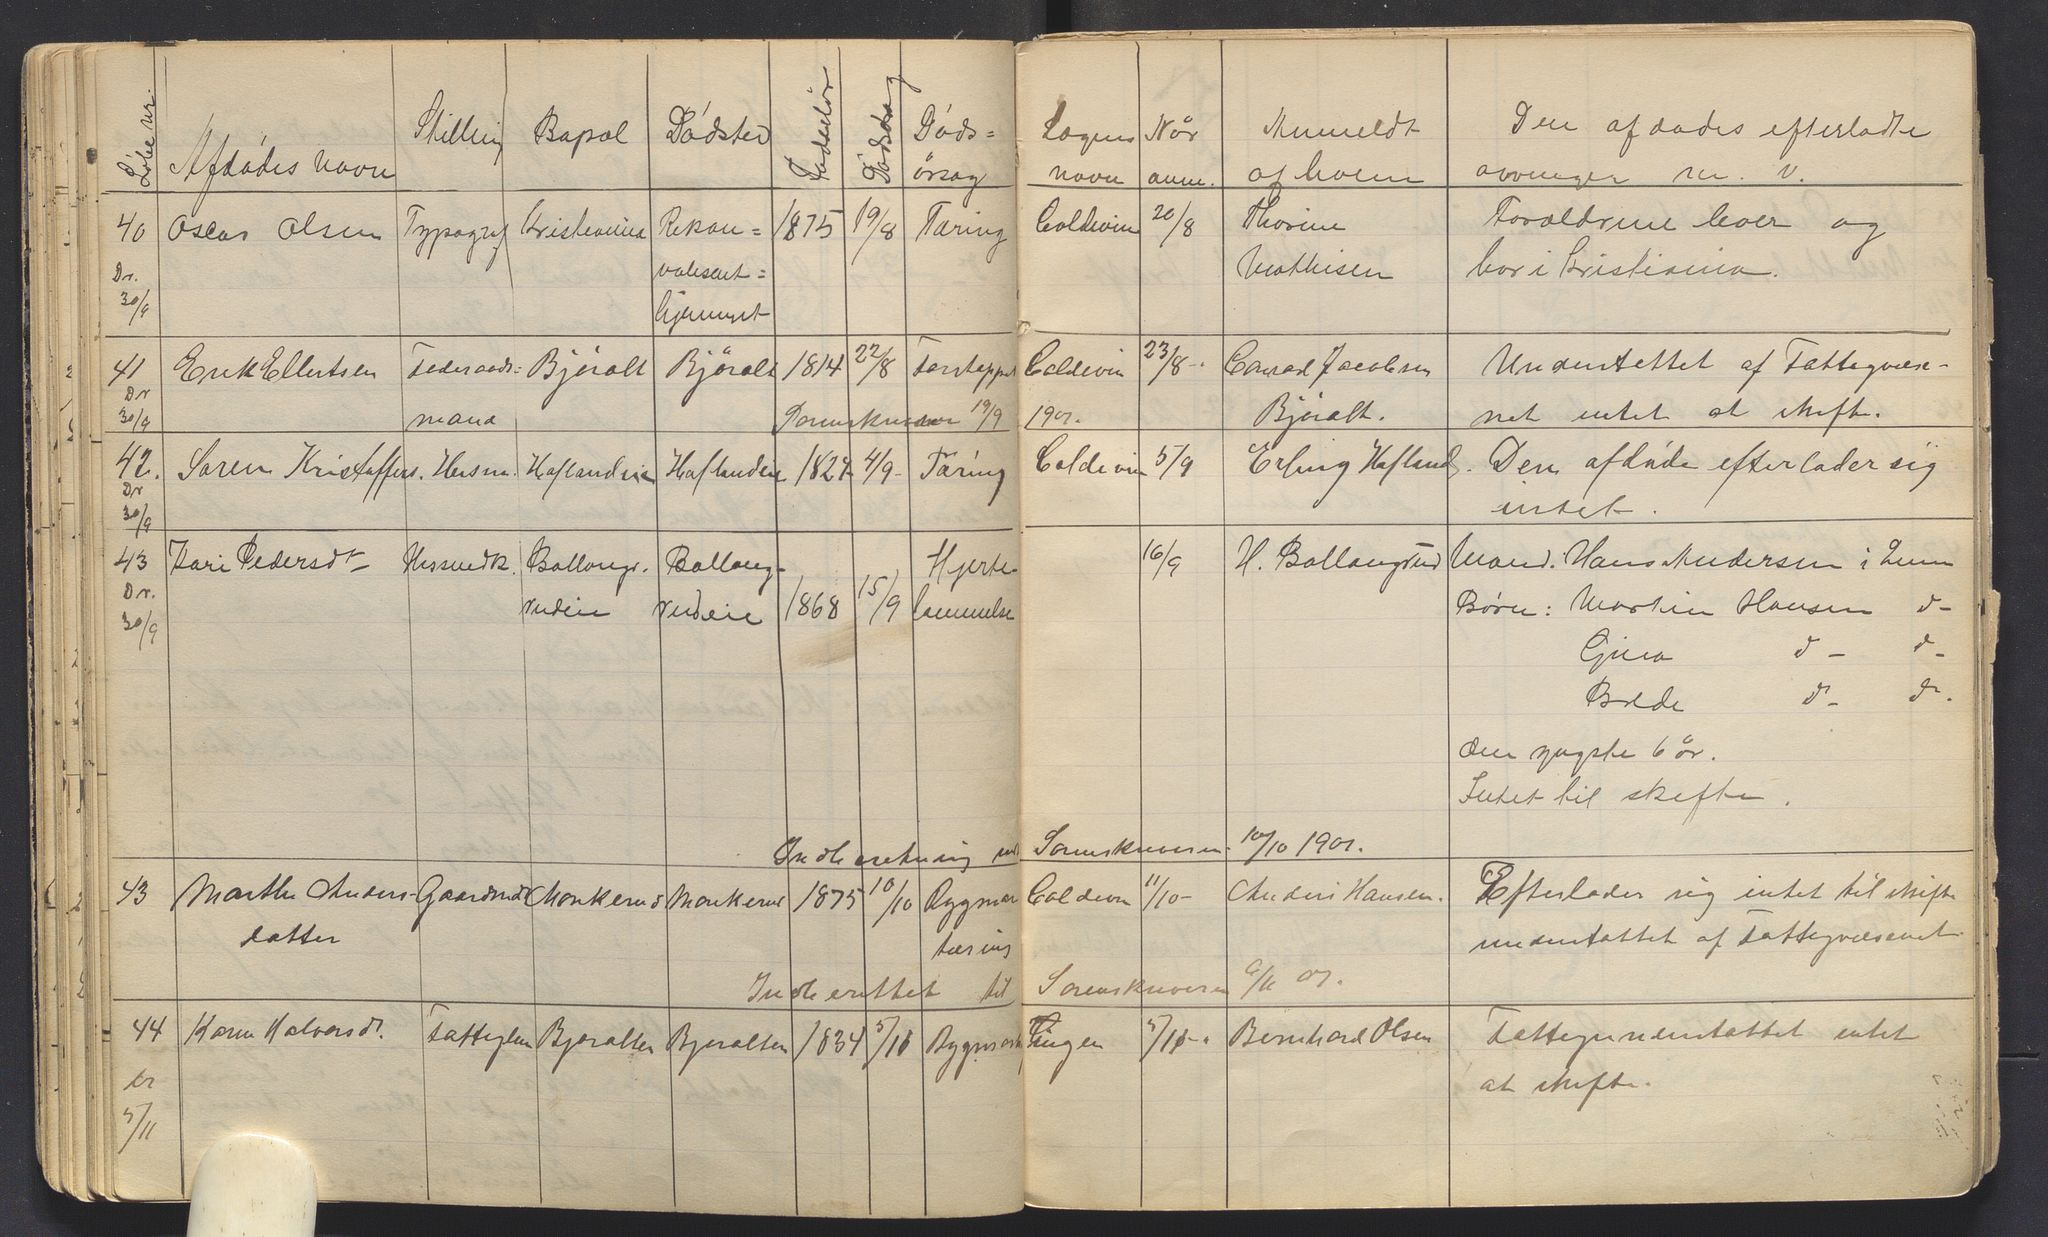 Løbe nr. Afdødes navn Stilling Bopæl Dødsted Fødselsår Dødsdag Døds= Lægens Når Anmeldt Den afdødes efterladte
årsag navn anm. af hvem arvinger m. v.
40 Oscar Olsen Typograf Kristiania Rekon= 1875 19/8 Tæring Coldevin 20/8 Thorine Forældrene lever og
Dr. valesent= Mathisen bor i Kristiania.
30/9 hjemmet
41 Erik Ellertsen Føderaads= Björalt Björalt 1814 22/8 Coldevin 23/8 Conrad Jacobsen Understøttet af Fattigvæse-
Dr
30/9 mand Sorenskriveren 19/9 1901. Björalt. net intet at skifte.
42. Søren Kristoffers. Husm. Haflandeie Haflandeie 1827 4/9 Tæring Coldevin 5/9 Erling Hafland. Den afdøde efterlader sig
Dr
30/9 intet.
43 Kari Pedersdt Husmdk. Ballangr. Ballang- 15/9 Hjerte- 16/9 H. Ballangrud Mand. Hans Andersen i Lunn
Dr. rudeie rudeie 1868 lammelse Børn: Martin Hansen d-
30/9 Gina d- d-
d- d-.
den yngste 6 år.
Intet til skifte.
Indberetning Sorenskriveren 10/10 1901.
43 Marthe Anders- Gaardmdk Monkerud Monkerud 1875 10/10 Rygmar Coldevin 11/10- Anders Hansen. Efterlader sig intet til skifte
datter tæring understøttet af Fattigvæsenet.
Indberettet til Sorenskriveren 6/11 01.
44 Karen Halvorsdt. Fattiglem Bjøralten Bjøralten 1834 5/11 Rygmarks 5/11-. Bernhard Olsen Fattigunderstøttet intet
Dr at skifte.
5/11